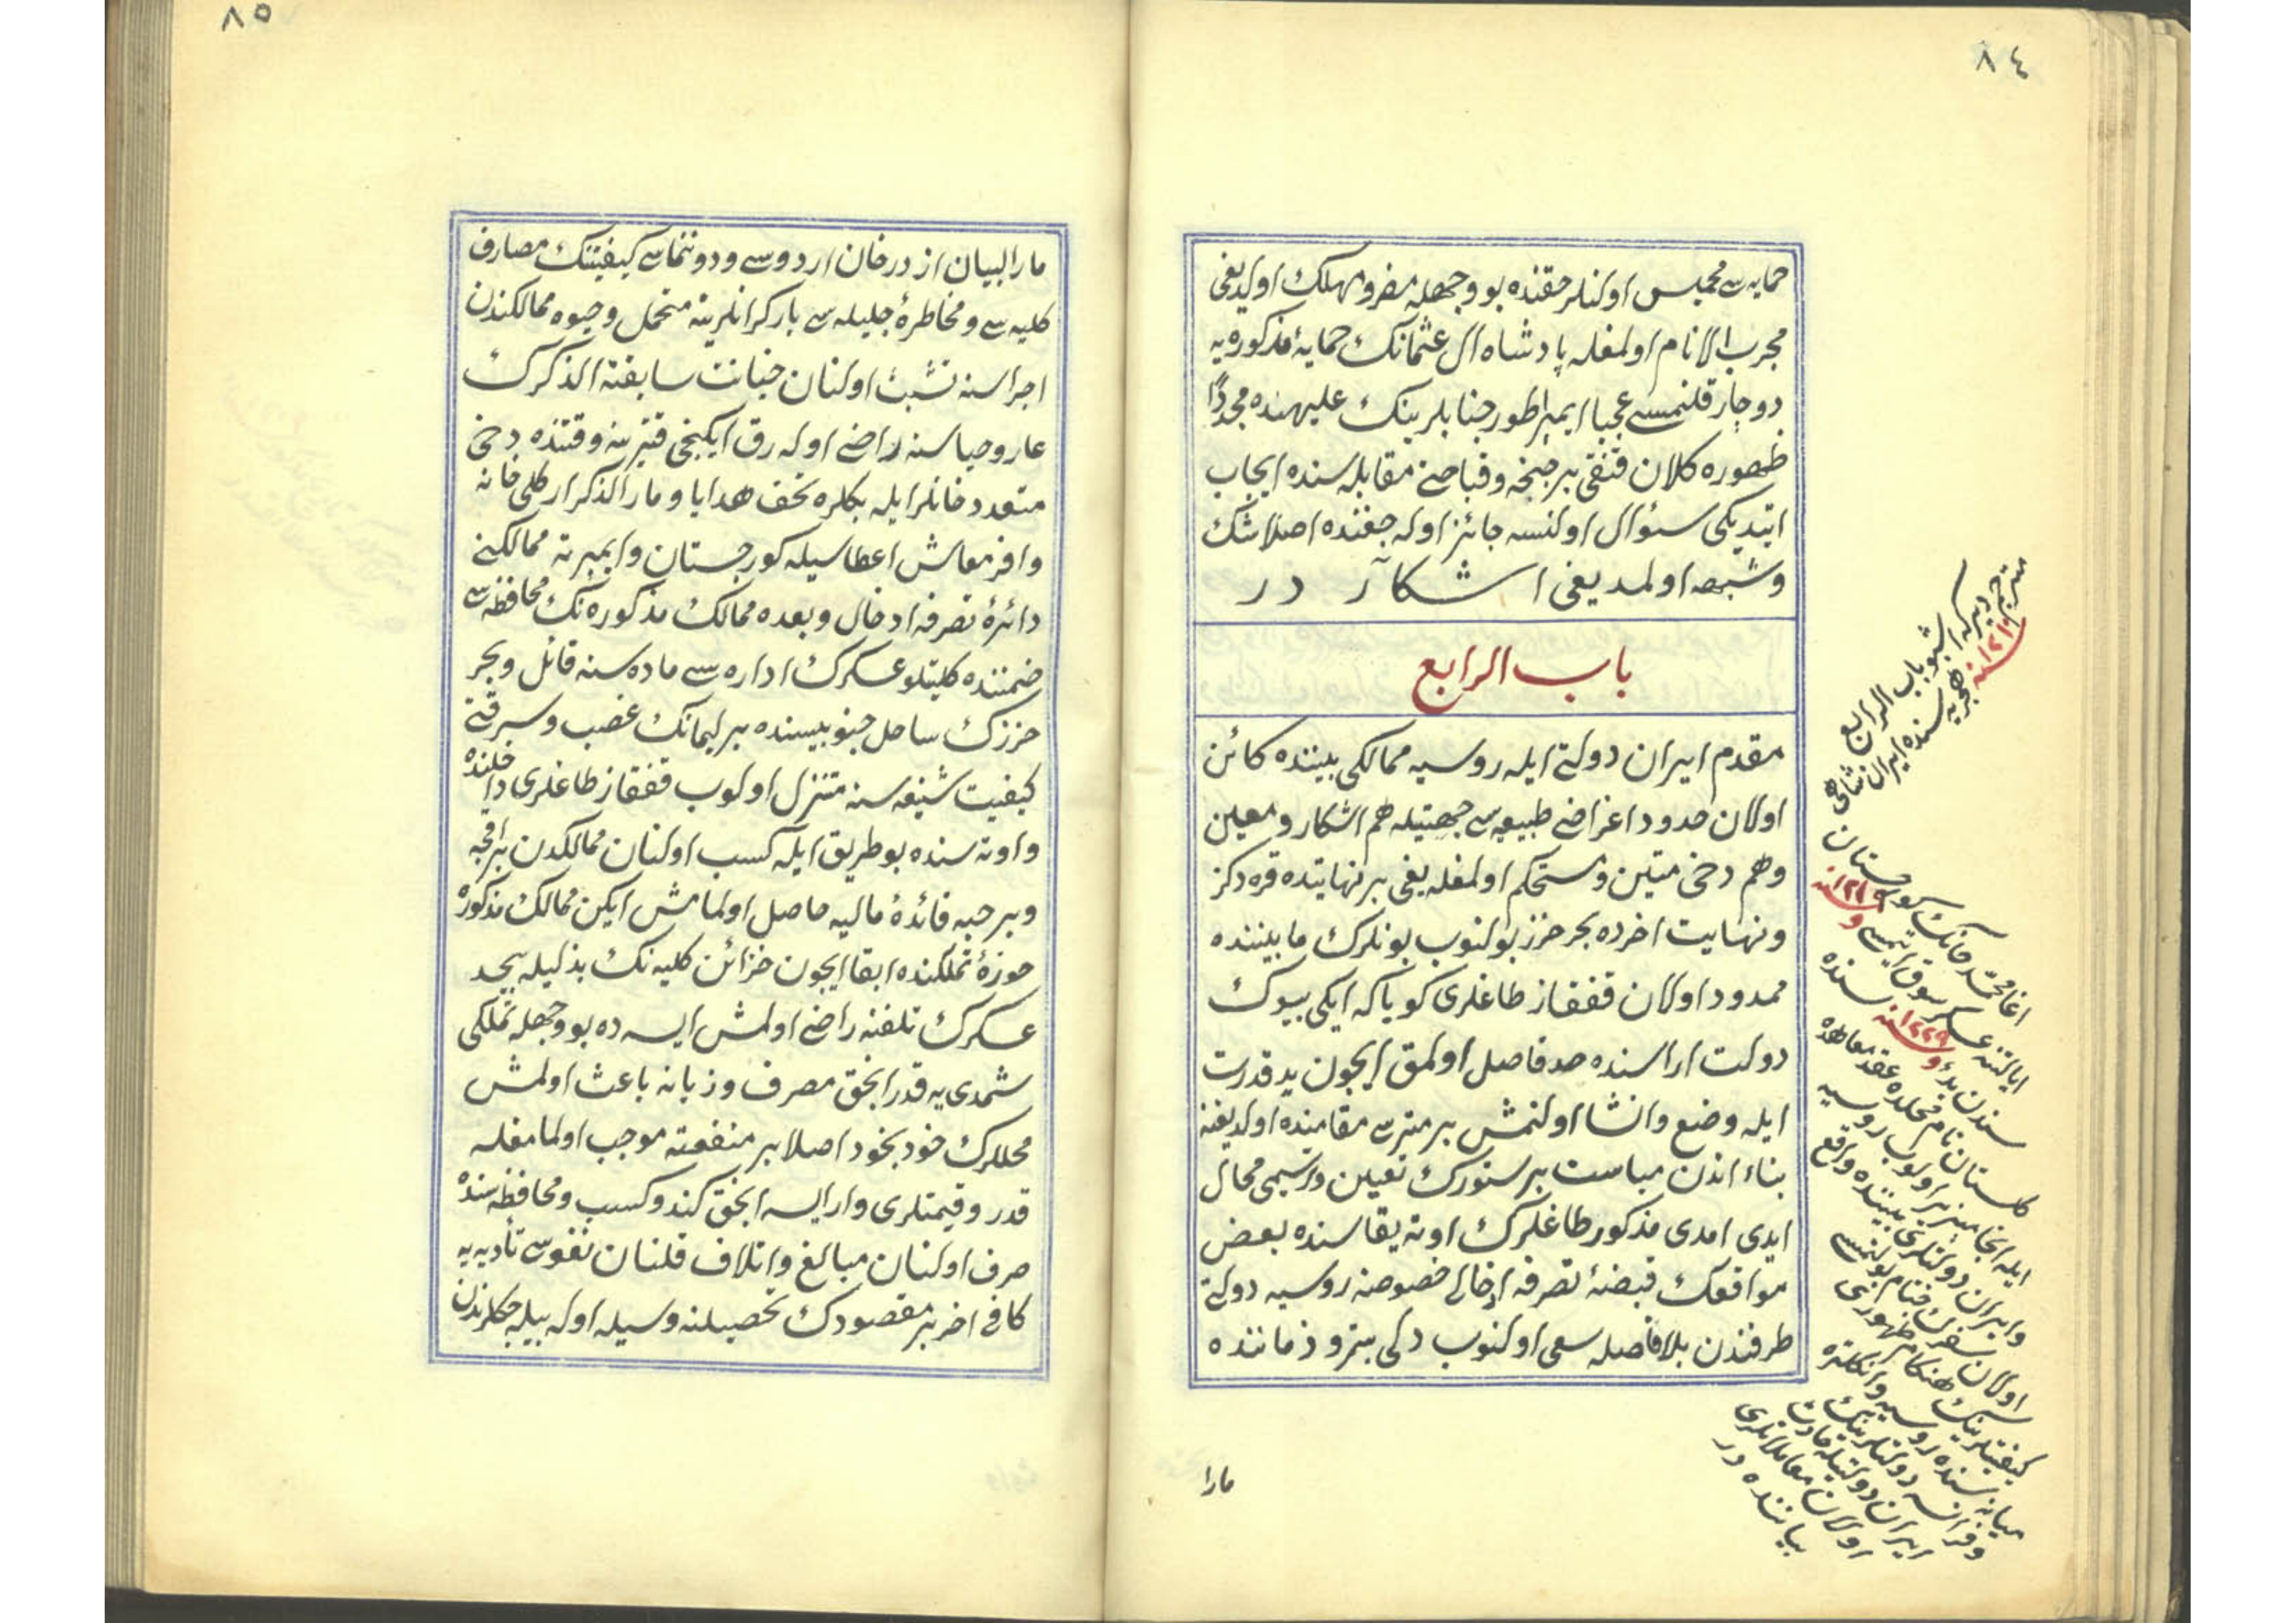 ٨٤
حمایه سی محبس اولنلر حقنده بو وجهله مضر و مهلك اولدیغی
مجرب الانام اولمغله پادشاه آل عثمانك حمایهٔ مذکوره یه
دوچار قلنمسی عجبا ایمپراطور جنابلرینك علیهنده مجددًا
ظهوره کلان قنغی بر جنحه و قباحتی مقابله سنده ایجاب
ایتدیکی سئوال اولنسه جائز اوله جغنده اصلا شك
وشبهه اولمدیغی اشکار در
باب الرابع
مقدم ایران دولتی ایله روسیه ممالکی بیننده کائن
اولان حدود اغراض طبیعیه سی جهتیله هم اشکار و معین
وهم دخی متین و مستحکم اولمغله یغی بر نهایتده قره دکز
ونهایت اخرده بحر خزر بولنوب بونلرك مابیننده
ممدود اولان قفقاز طاغلری کویا که ایکی بیوك
دولت اراسنده حد فاصل اولمق ایچون ید قدرت
ایله وضع وانشا اولنمش بر متریس مقامنده اولدیغنه
بناء اندن مباست بر سنورك تعیین و ترسیمی محال
ایدی امدی مذکور طاغلرك اوته یقاسنده بعض
مواقعك قبضهٔ تصرفه ادخالی خصوصنه روسیه دولتی
طرفندن بلا فاصله سعی اولنوب دلی پترو زماننده
مارا
مترجم دیر که اشبو باب الرابع
سنه ١٢١٠ هجریه سنده ایران شاهی
اغا محمد خانك کورجستان
ایالتنه عسکر سوق ایتمسی و سنه ١٢١٩
سندن بدء و سنه ١٢٢٩ سنده
کلستان نام محلده عقد معاهده
ایله انجامپذیر اولوب روسیه
وایران دولتلری بیننده واقع
اولان سفرك ختام بولنمسی
کیفیتلرینك هنکام ظهوری
میانه سنده روسیه وانکلتره
وفرانسه دولتلرینك
ایران دولتیله حادث
اولان معاملاتلری
بیاننده در
٨٥
مارالبیان از درخان اردوسی ودوننماسی کیفیتنك مصارف
کلیه سی و مخاطرهٔ جلیله سی بارکرانلرینه متحمل وخیوه ممالکندن
اجراسنه تشبث اولنان خیانت سابقة الذکرك
عار وحیاسنه راضی اوله رق ایکنجی قترینه وقتنده دخی
متعدد خانلر ایله بکلره تحف هدایا و مارالذکر ارکلی خانه
وافر معاش اعطاسیله کورجستان وایمیرته ممالکنی
دائرهٔ تصرفه ادخال وبعده ممالك مذکوره نك محافظه سی
ضمننده کلیتلو عسکرك اداره سی ماده سنه قائل وبحر
خزرك ساحل جنوبیسنده بر لیمانك غصب وسرقتی
کیفیت شنیعه سنه متنزل اولوب قفقاز طاغلری داخلنده
واوته سنده بو طریق ایله کسب اولنان ممالکدن بر اقچه
وبر حبه فائدهٔ مالیه حاصل اولمامش ایکن ممالك مذکوره
حوزهٔ تملکنده ابقا ایچون خزائن کلیه نك بذلیله بیحد
عسکرك تلفنه راضی اولمش ایسه ده بو وجهله تملکی
شمدی یه قدر انجق مصرف وزیانه باعث اولمش
محللرك خود بخود اصلا بر منفعته موجب اولمامغله
قدر وقیمتلری وار ایسه انجق کندو کسب ومحافظه سنده
صرف اولنان مبالغ واتلاف قلنان نفوسی تأدیه یه
کافی اخر بر مقصودك تحصیلنه وسیله اوله بیله جکلرندن